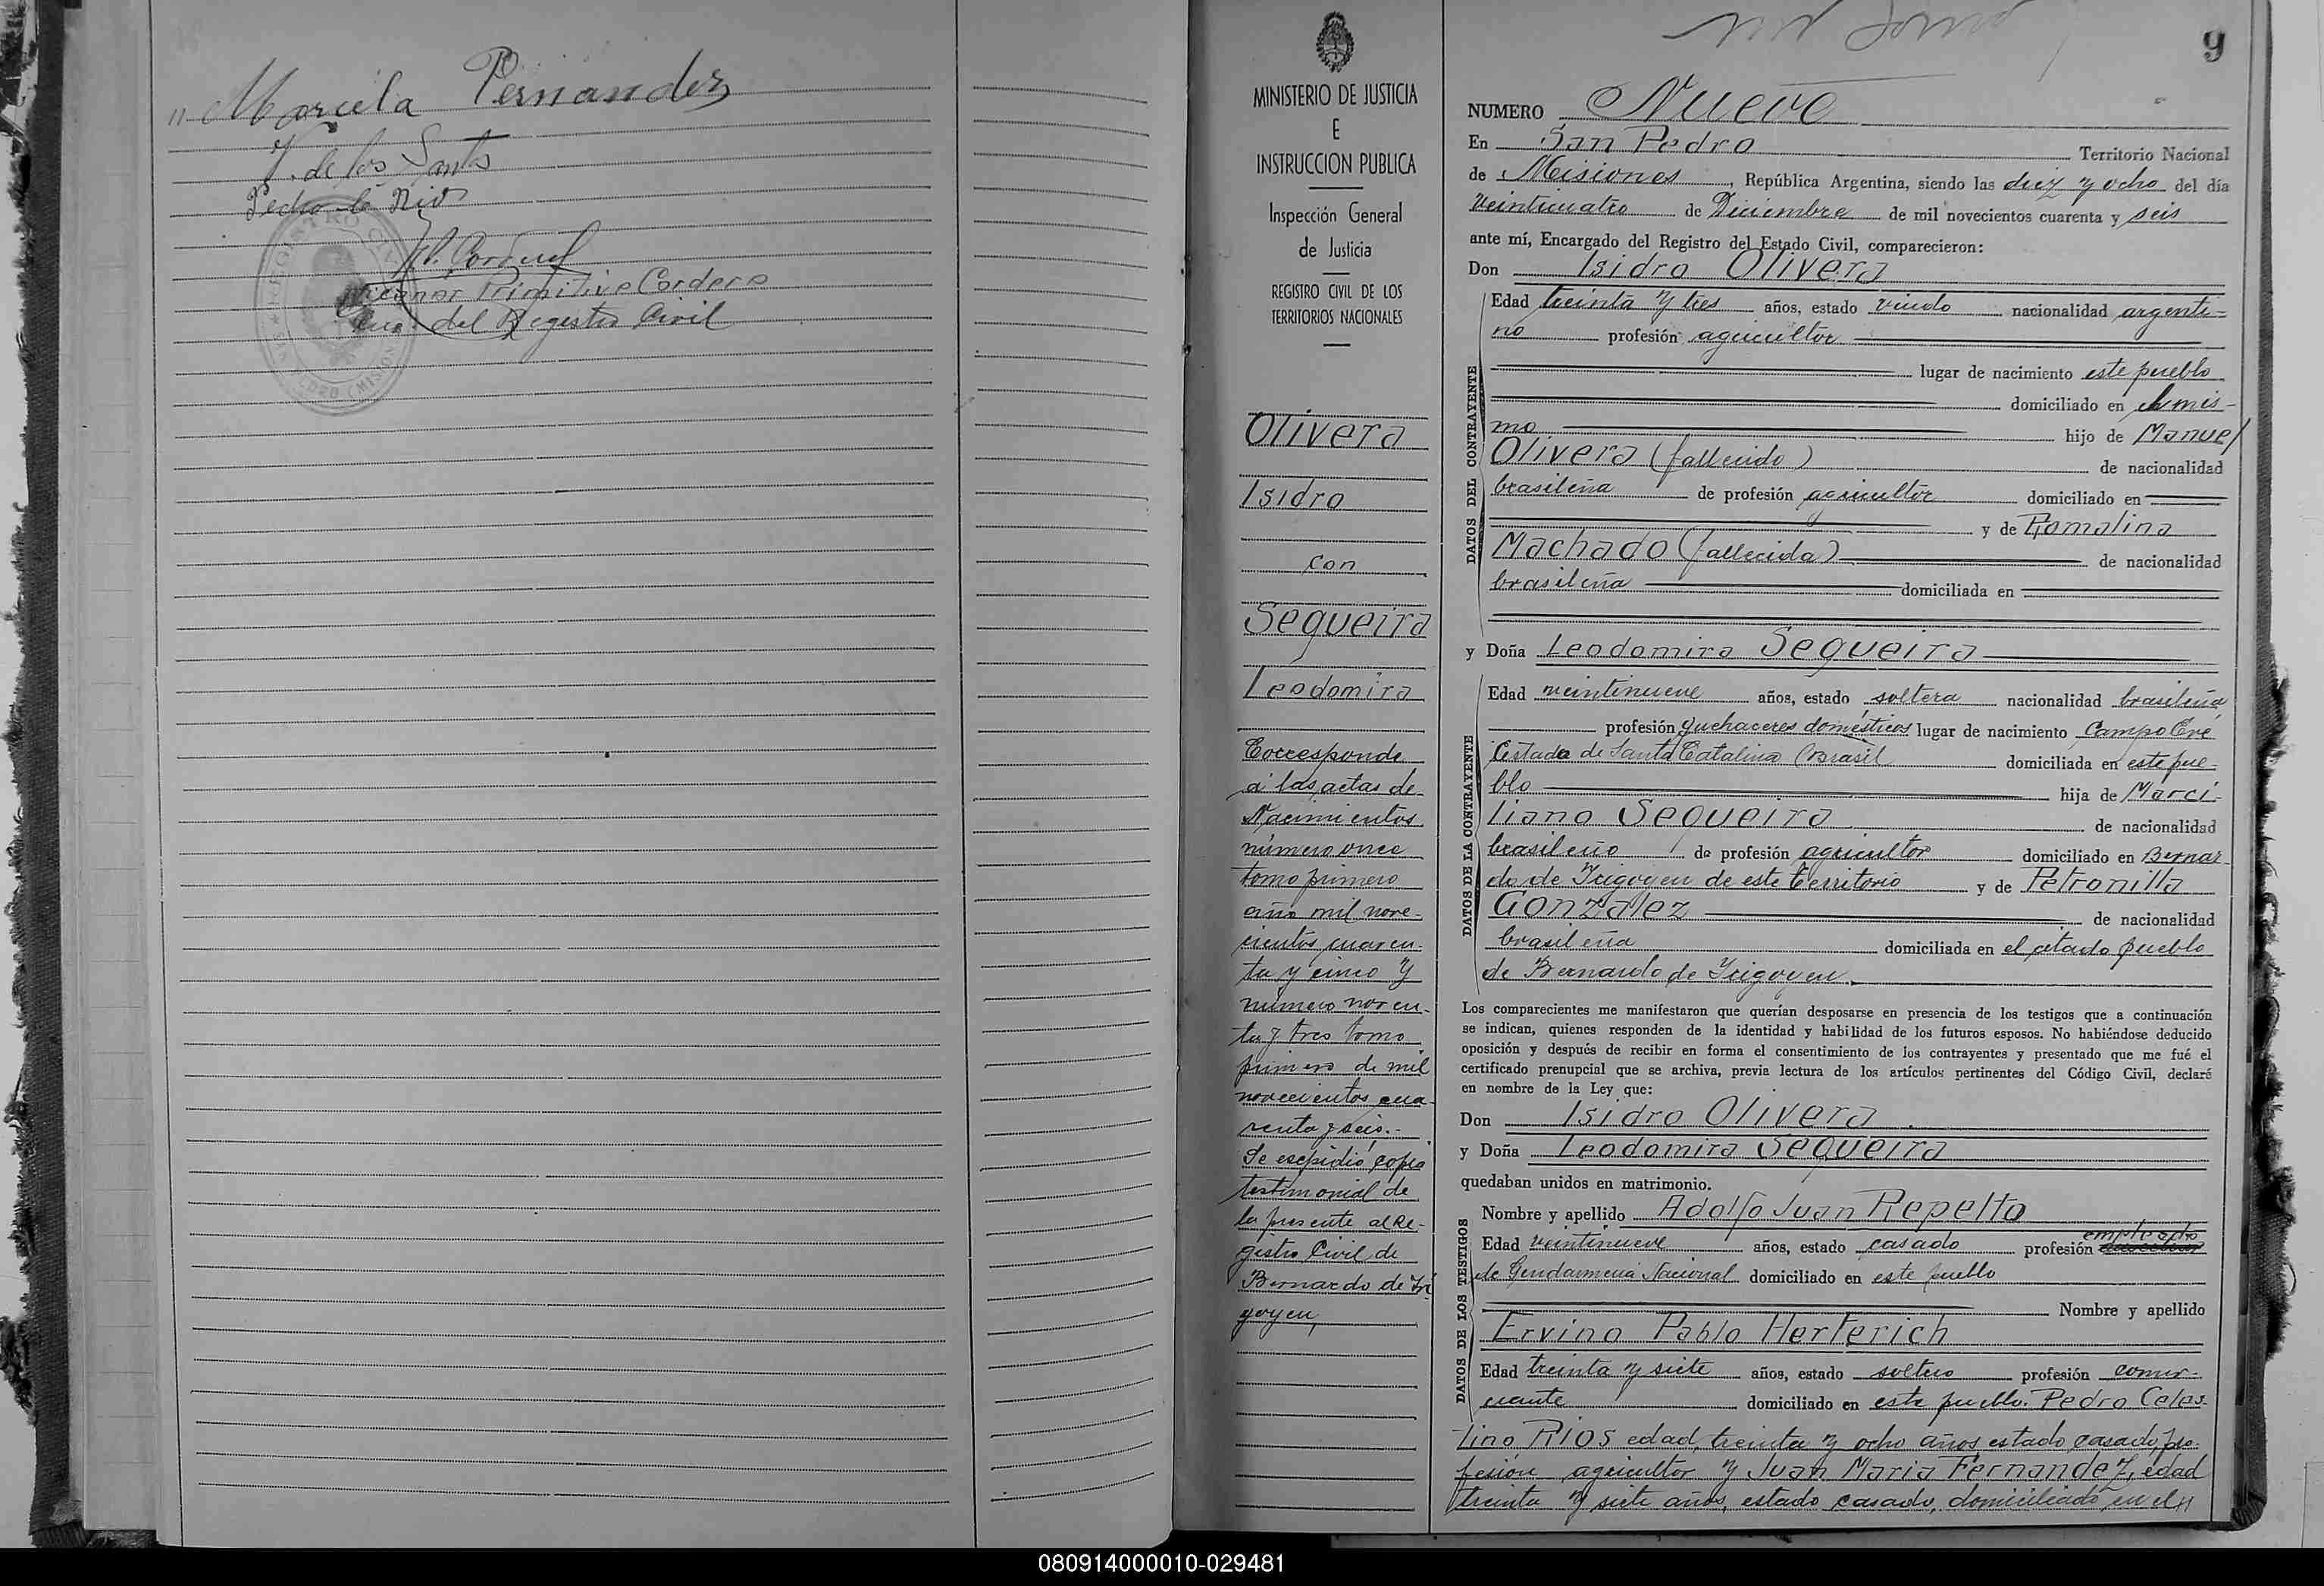 " Marcela Fernandez
V. de los Santos
Pedro C Rios
N. P. Cordero
Nicanor Primitivo Cordero
Enc. del Registro Civil
MINISTERIO DE JUSTICIA
E
INSTRUCCION PUBLICA
Inspección General
de Justicia
REGISTRO CIVIL DE LOS
TERRITORIOS NACIONALES
Olivera
Isidro
con
Sequeira
Leodomira
Corresponde
á las actas de
Nacimientos
número once
tomo primero
año mil nove-
cientos cuaren-
ta y cinco y
número noven-
ta y tres tomo
primero de mil
novecientos cua-
renta y seis.-
Se escpidió copia
testimonial de
la presente al Re-
gistro Civil de
Bernardo de Iri
goyen,
9
NUMERO Nueve
En San Pedro Territorio Nacional
de Misiones, República Argentina, siendo las diez y ocho del día
veinticuatro de Diciembre de mil novecientos cuarenta y seis
ante mí, Encargado del Registro del Estado Civil, comparecieron:
Don Isidro Olivera
DATOS DEL CONTRAYENTE
Edad treinta y tres años, estado viudo nacionalidad argenti-
no profesión agricultor
lugar de nacimiento este pueblo
domiciliado en el mis-
mo hijo de Manuel
Olivera (fallecido) de nacionalidad
brasileña de profesión agricultor domiciliado en
y de Romalina
Machado (fallecida) de nacionalidad
brasileña domiciliada en
y Doña Leodomira Sequeira
DATOS DE LA CONTRAYENTE
Edad veintinueve años, estado soltera nacionalidad brasileña
profesión quehaceres domésticos lugar de nacimiento Campo Eré
Estado de Santa Catalina (Brasil domiciliada en este pue-
blo hija de Marci-
liano Sequeira de nacionalidad
brasileño de profesión agricultor domiciliado en Bernar-
do de Irigoyen de este territorio y de Petronilla
Gonzalez de nacionalidad
brasileña domiciliada en el citado pueblo
de Bernardo de Irigoyen.
Los comparecientes me manifestaron que querían desposarse en presencia de los testigos que a continuación
se indican, quienes responden de la identidad y habilidad de los futuros esposos. No habiéndose deducido
oposición y después de recibir en forma el consentimiento de los contrayentes y presentado que me fué el
certificado prenupcial que se archiva, previa lectura de los artículos pertinentes del Código Civil, declaré
en nombre de la Ley que:
Don Isidro Olivera
y Doña Leodomira Sequeira
quedaban unidos en matrimonio.
DATOS DE LOS TESTIGOS
Nombre y apellido Adolfo Juan Repetto
Edad veintinueve años, estado casado profesión empleado
de Gendarmeria Nacional domiciliado en este pueblo
Nombre y apellido
Ervino Pablo Herferich
Edad treinta y siete años, estado soltero profesión comer-
ciante domiciliado en este pueblo. Pedro Celes-
tino Rios edad, treinta y ocho años, estado casado, pro-
fesión agricultor y Juan Maria Fernandez, edad
treinta y siete años, estado casado, domiciliado en el "
080914000010-029481